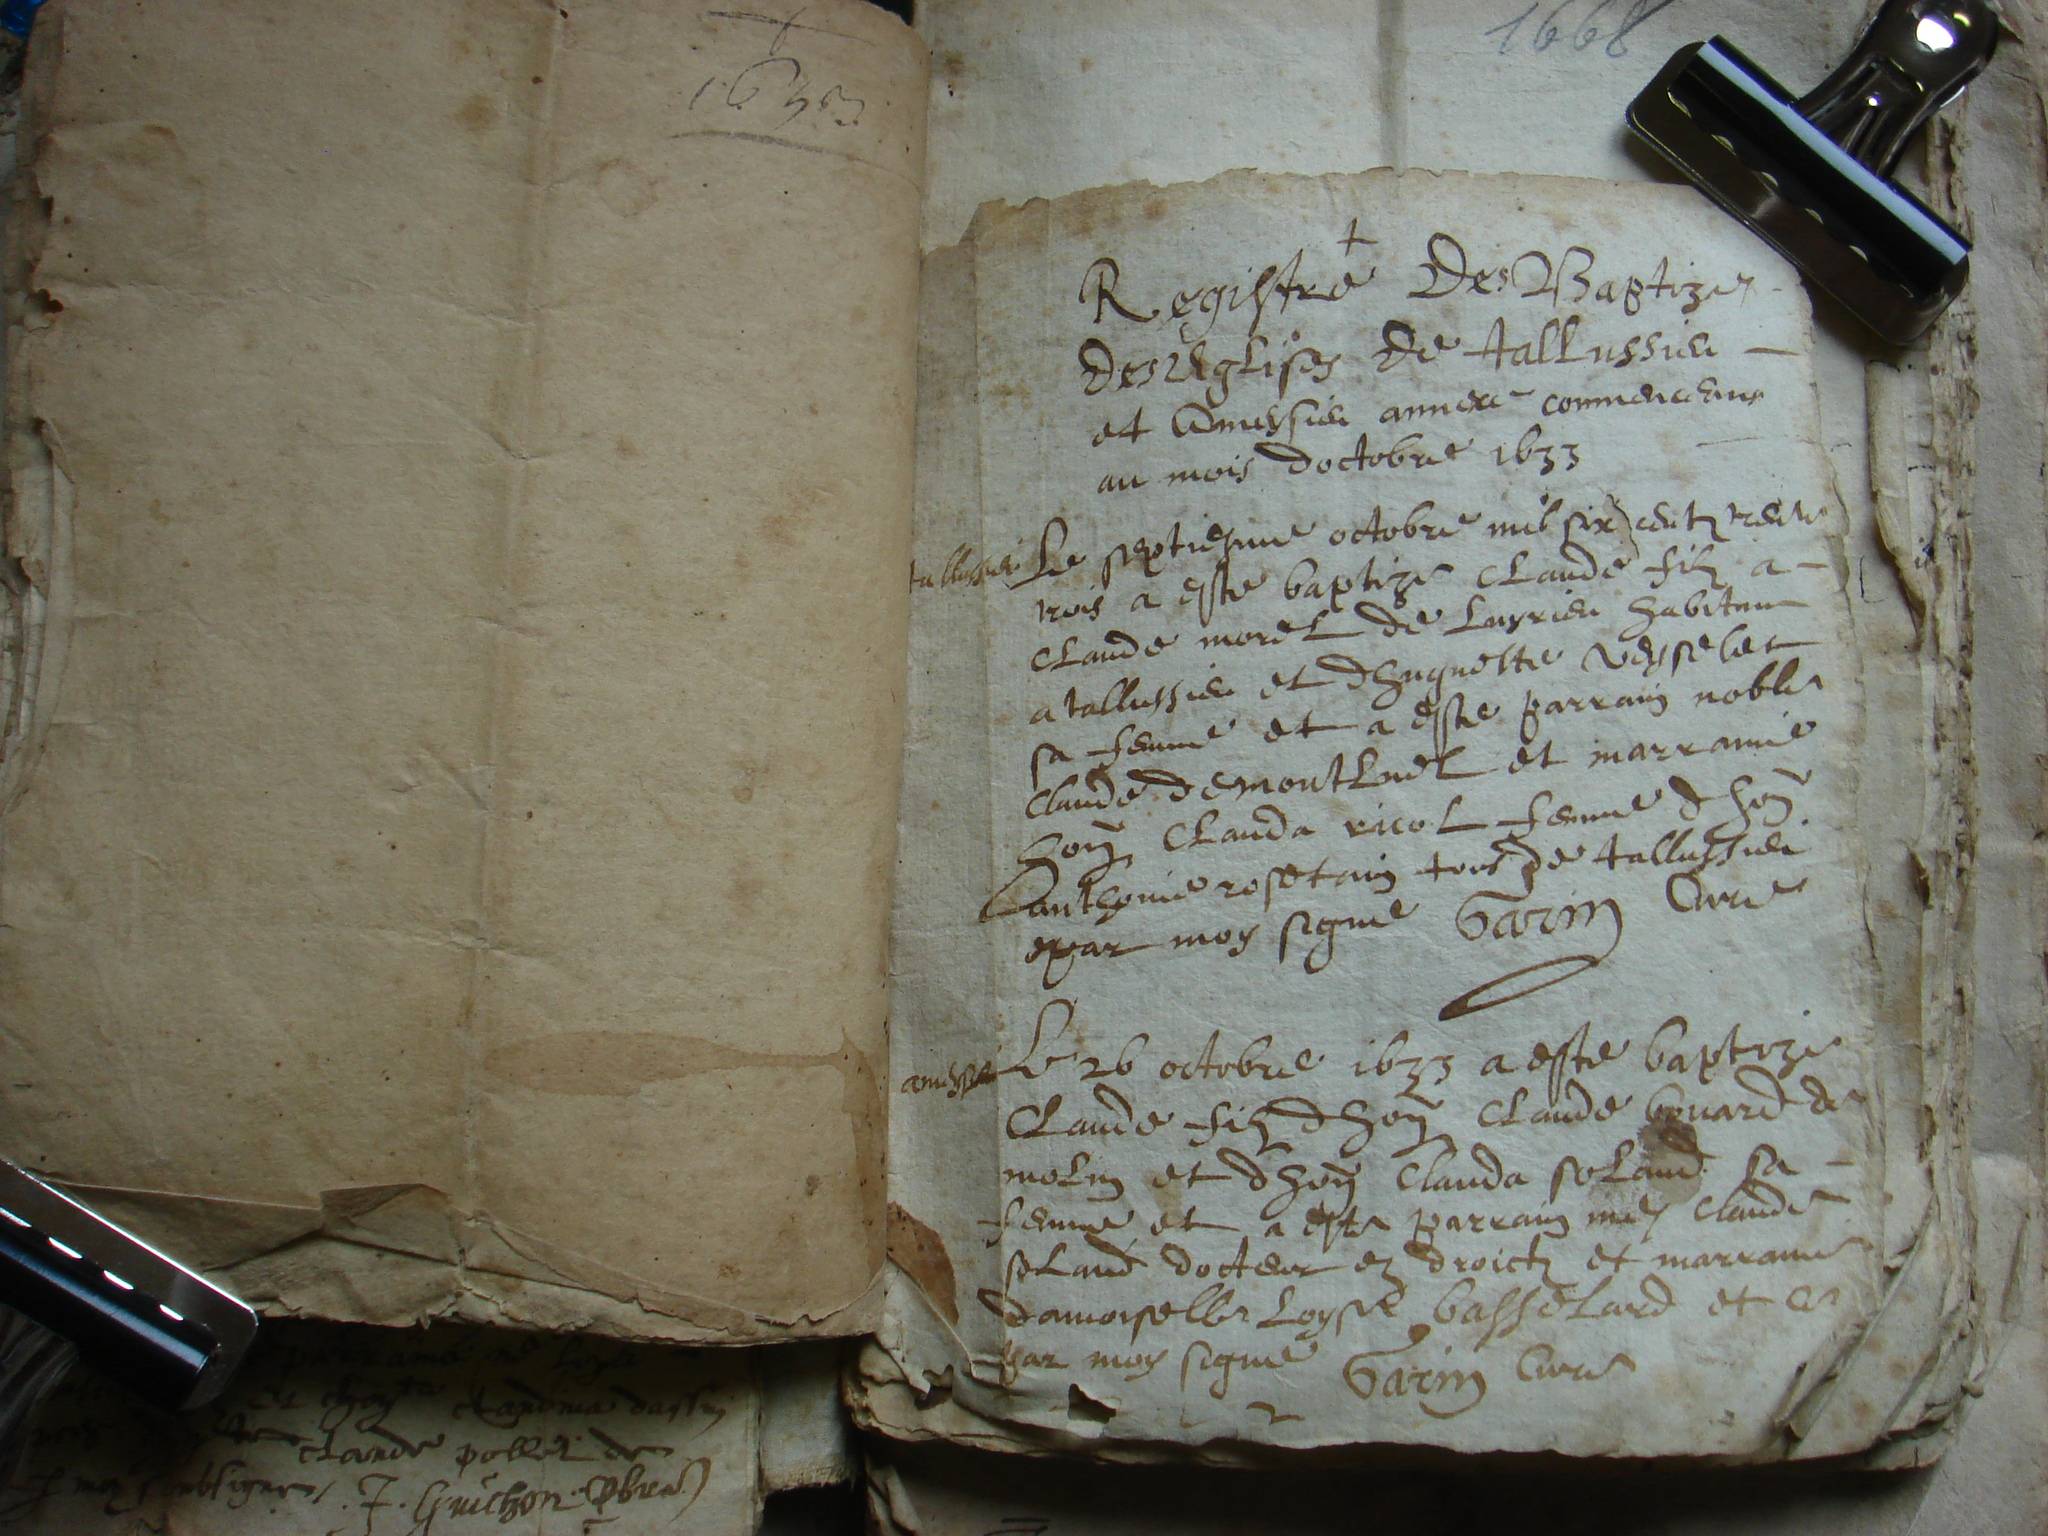 1633
1668
+
Registre Des Baptizes
Des Eglises de tallussieu
et Ameysieu annexe commenceant
au mois doctobre 1633
tallussieu
Le septiesme octobre mil six centz trente
trois a este baptize Claude filz a
Claude morel de Luyrieu habitant
a tallussieu et dhuguette veysselet
sa femme et a este parrain noble
Claude demontluel et marraine
hon Clauda ricol femme dhon
anthonie rosetain tous de tallussieu
e par moy signe Garin Cure
Le 26 octobre 1633 a este baptize
Claude filz dhon Claude bouard de
molin et dhon Clauda soland sa
femme et a este parrain me Claude
soland docteur ez droictz et marraine
damoiselle Loyse basselard et ce
par moy signe Garin Cure
2
Claude pollet de
J. Guichon pbre